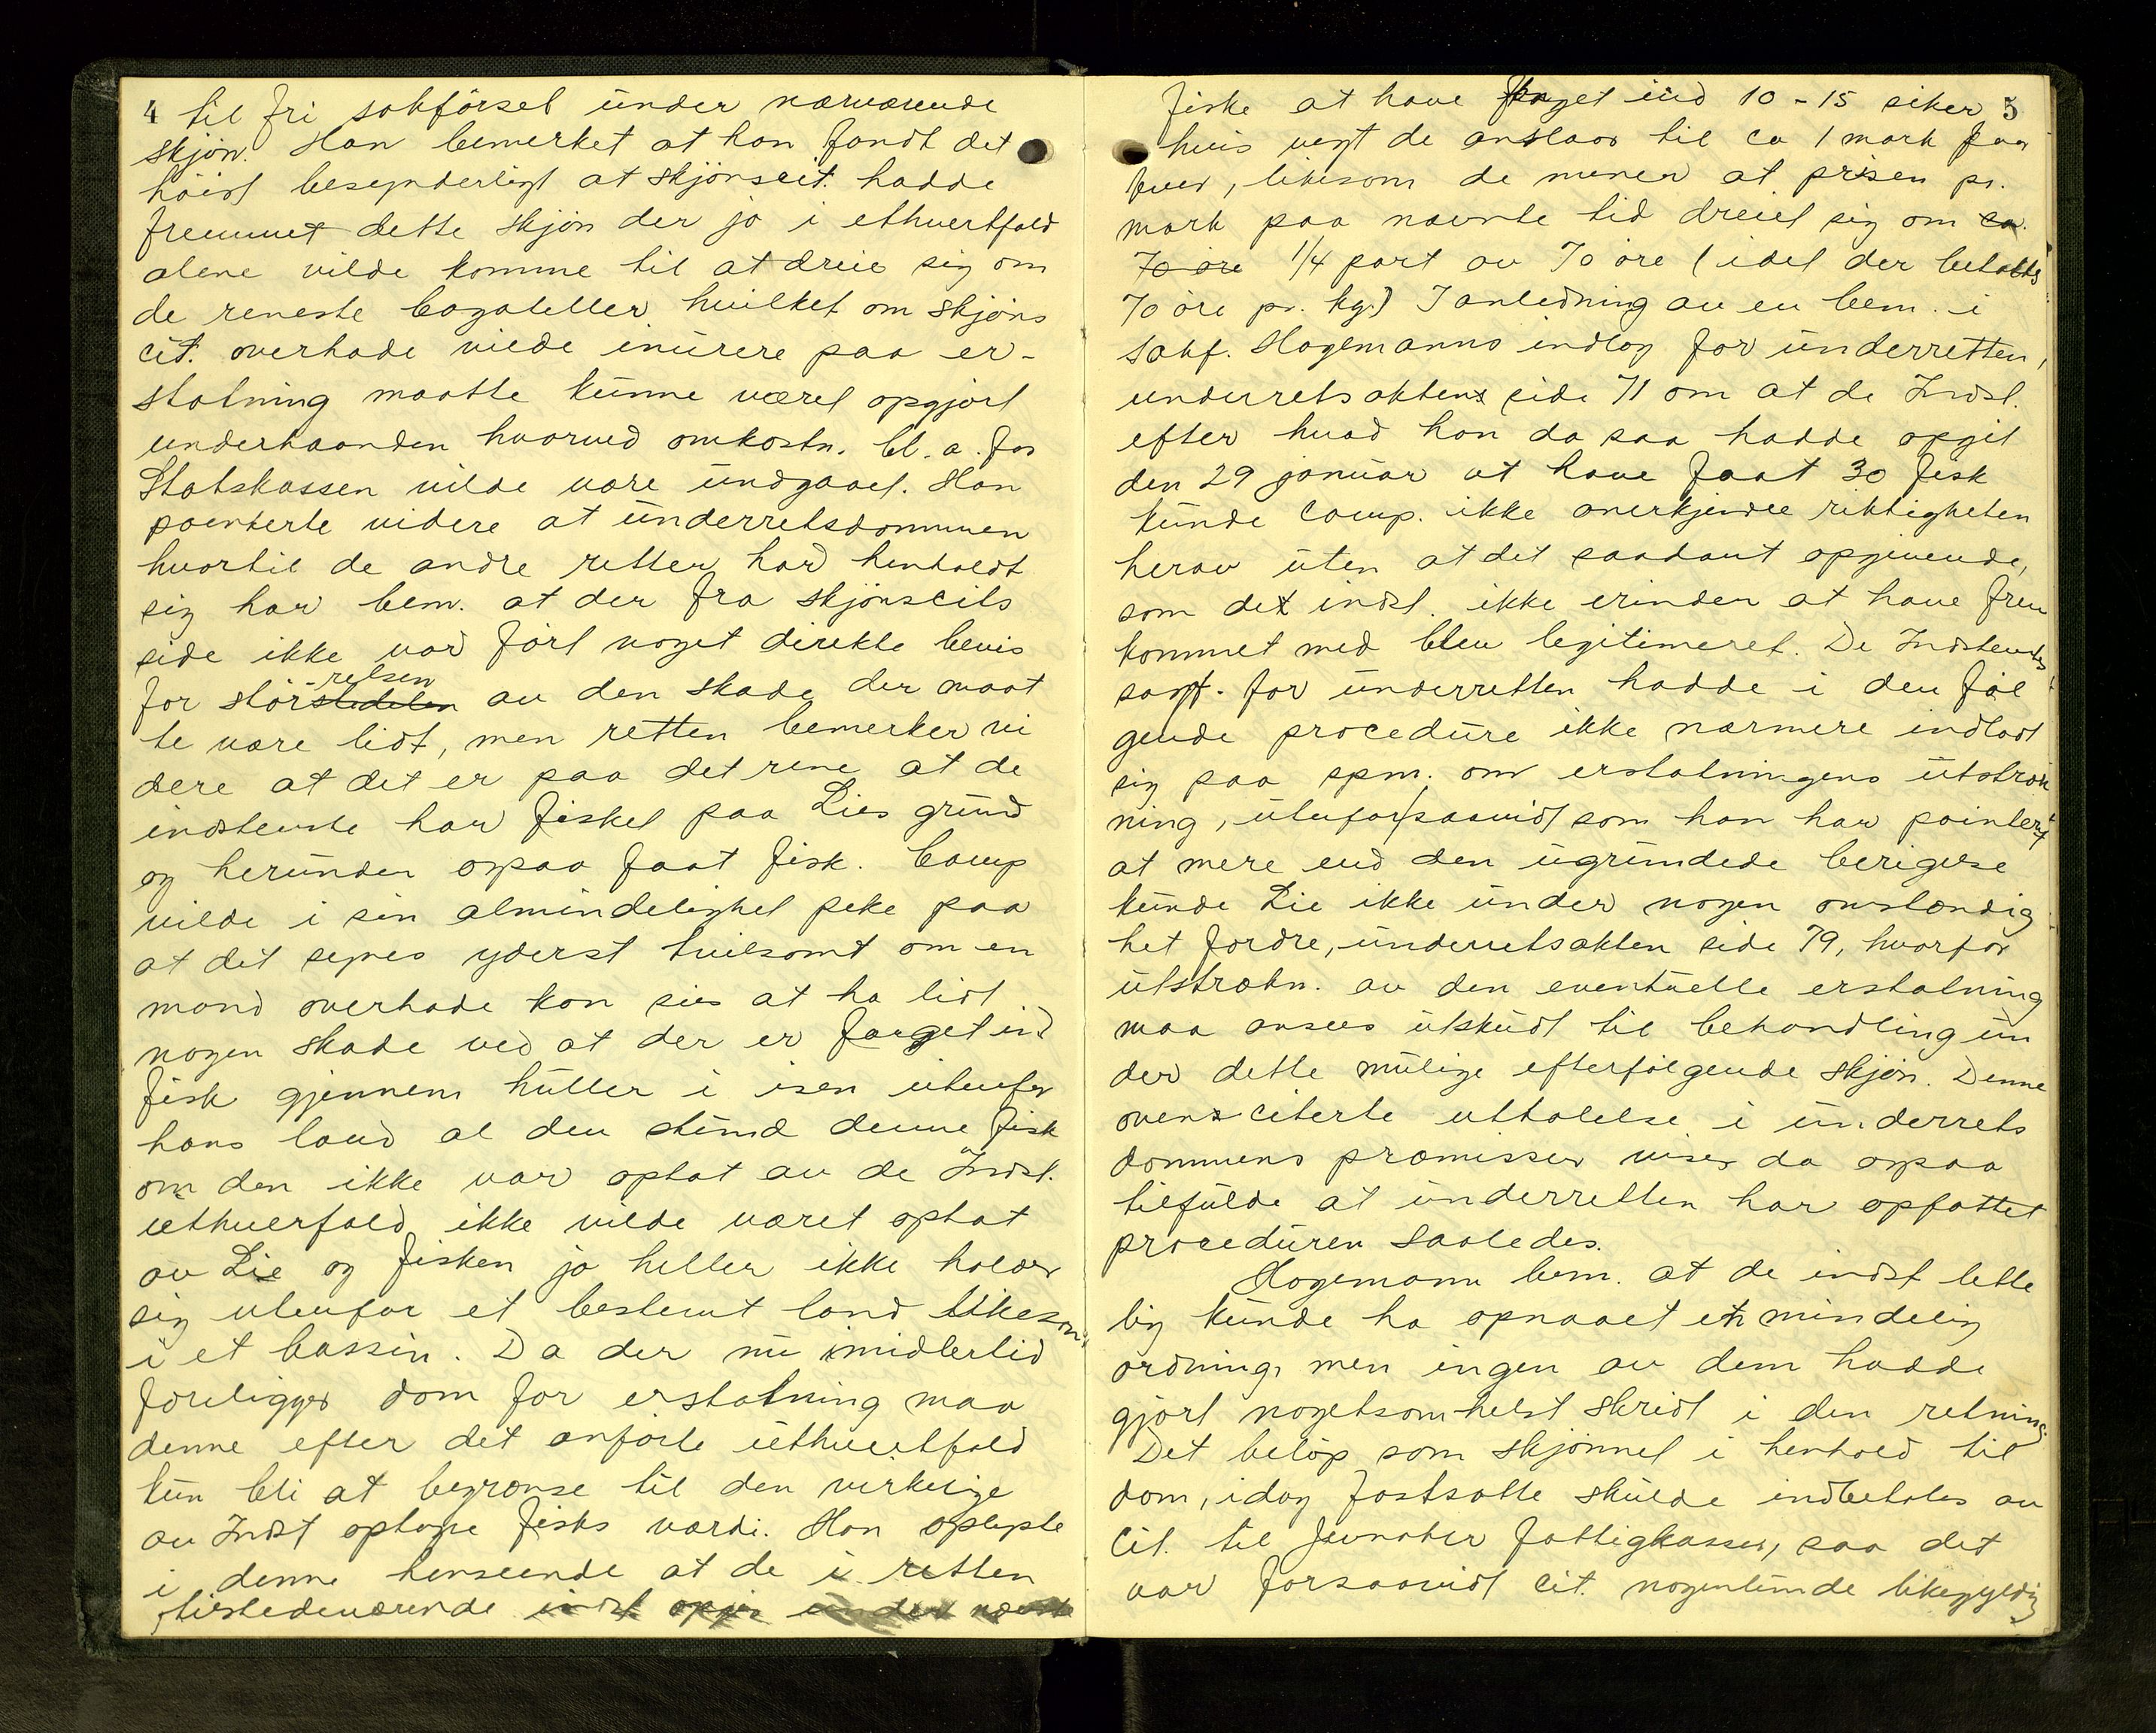 4 til fri sakførsel under nærværende
skjøn. Han bemerket at han fandt det
høist besynderligt at skjønscit. hadde
fremmet dette skjøn der jo i ethvertfald
alene vilde komme til at dreie sig om
de reneste bagateller hvilket om skjøns
cit. overhode vilde inurere paa er-
statning maatte kunne været opgjort
underhaanden hvorved omkostn. bl. a. for
Statskassen vilde være undgaaet. Han
pointerte videre at underretsdommen
hvortil de andre retter har henholdt
sig har bem. at der fra skjønscits
side ikke var ført noget direkte bevis
for størstedelen -relsen av den skade der maat
te være lidt, men retten bemerker vi
dere at det er paa det rene at de
indstevnte har fisket paa Lies grund
og herunder ogsaa faat fisk. Comp
vilde i sin almindelighet peke paa
at det synes yderst tvilsomt om en
mand overhode kan sies at ha lidt
nogen skade ved at der er fanget ind
fisk gjennem huller i isen utenfor
hans land al den stund denne fisk
om den ikke var optat av de Indst.
iethverfald ikke vilde været optat
av Lie og fisken jo heller ikke holder
sig utenfor et bestemt land likesom
i et bassin. Da der nu imidlertid
foreligger dom for erstatning maa
denne efter det anførte iethvertfald
kun bli at begrænse til den virkelige
av Indst optagne fisks værdi. Han oplyste
i denne henseende at de i retten
tilstedeværende indst opgir under nævnte
fiske at have fanget ind 10-15 siker 5
hvis vegt de anslaar til ca 1 mark paa
hver, likesom de mener at prisen pr.
mark paa nævnte tid dreiet sig om ca.
70 øre 1/4 part av 70 øre (idet der betaltes
70 øre pr. kg.) I anledning av en bem. i
sakf. Hagemanns indlæg for underretten,
underretsaktens side 71 om at de Indst.
efter hvad han da saa hadde opgit
den 29 januar at have faat 30 fisk
kunde Comp. ikke anerkjende riktigheten
herav uten at det saadant opgivende,
som det indst. ikke erindrer at have frem
kommet med blev legitimeret. De Indstevntes
sagf. for underretten hadde i den føl
gende procedure ikke nærmere indladt
sig paa spm. om erstatningens utstræk
ning, utenfor saavidt som han har pointert
at mere end den ugrundede berigelse
kunde Lie ikke under nogen omstændig
het fordre, underretsakten side 79, hvorfor
utstrækn. av den eventuelle erstatning
maa ansees utskudt til behandling un
der dette mulige efterfølgende skjøn. Denne
oven citerte uttalelse i underrets
dommens præmisser viser da ogsaa
tilfulde at underretten har opfattet
proceduren saaledes.
Hagemann bem. at de indst lette
lig kunde ha opnaaet en mindelig
ordning, men ingen av dem hadde
gjort nogetsomhelst skridt i den retning.
Det beløp som skjønnet i henhold til
dom, idag fastsatte skulde indbetales av
Cit. til Jevnaker fattigkasse, saa det
var forsaavidt cit. nogenlunde likegyldig